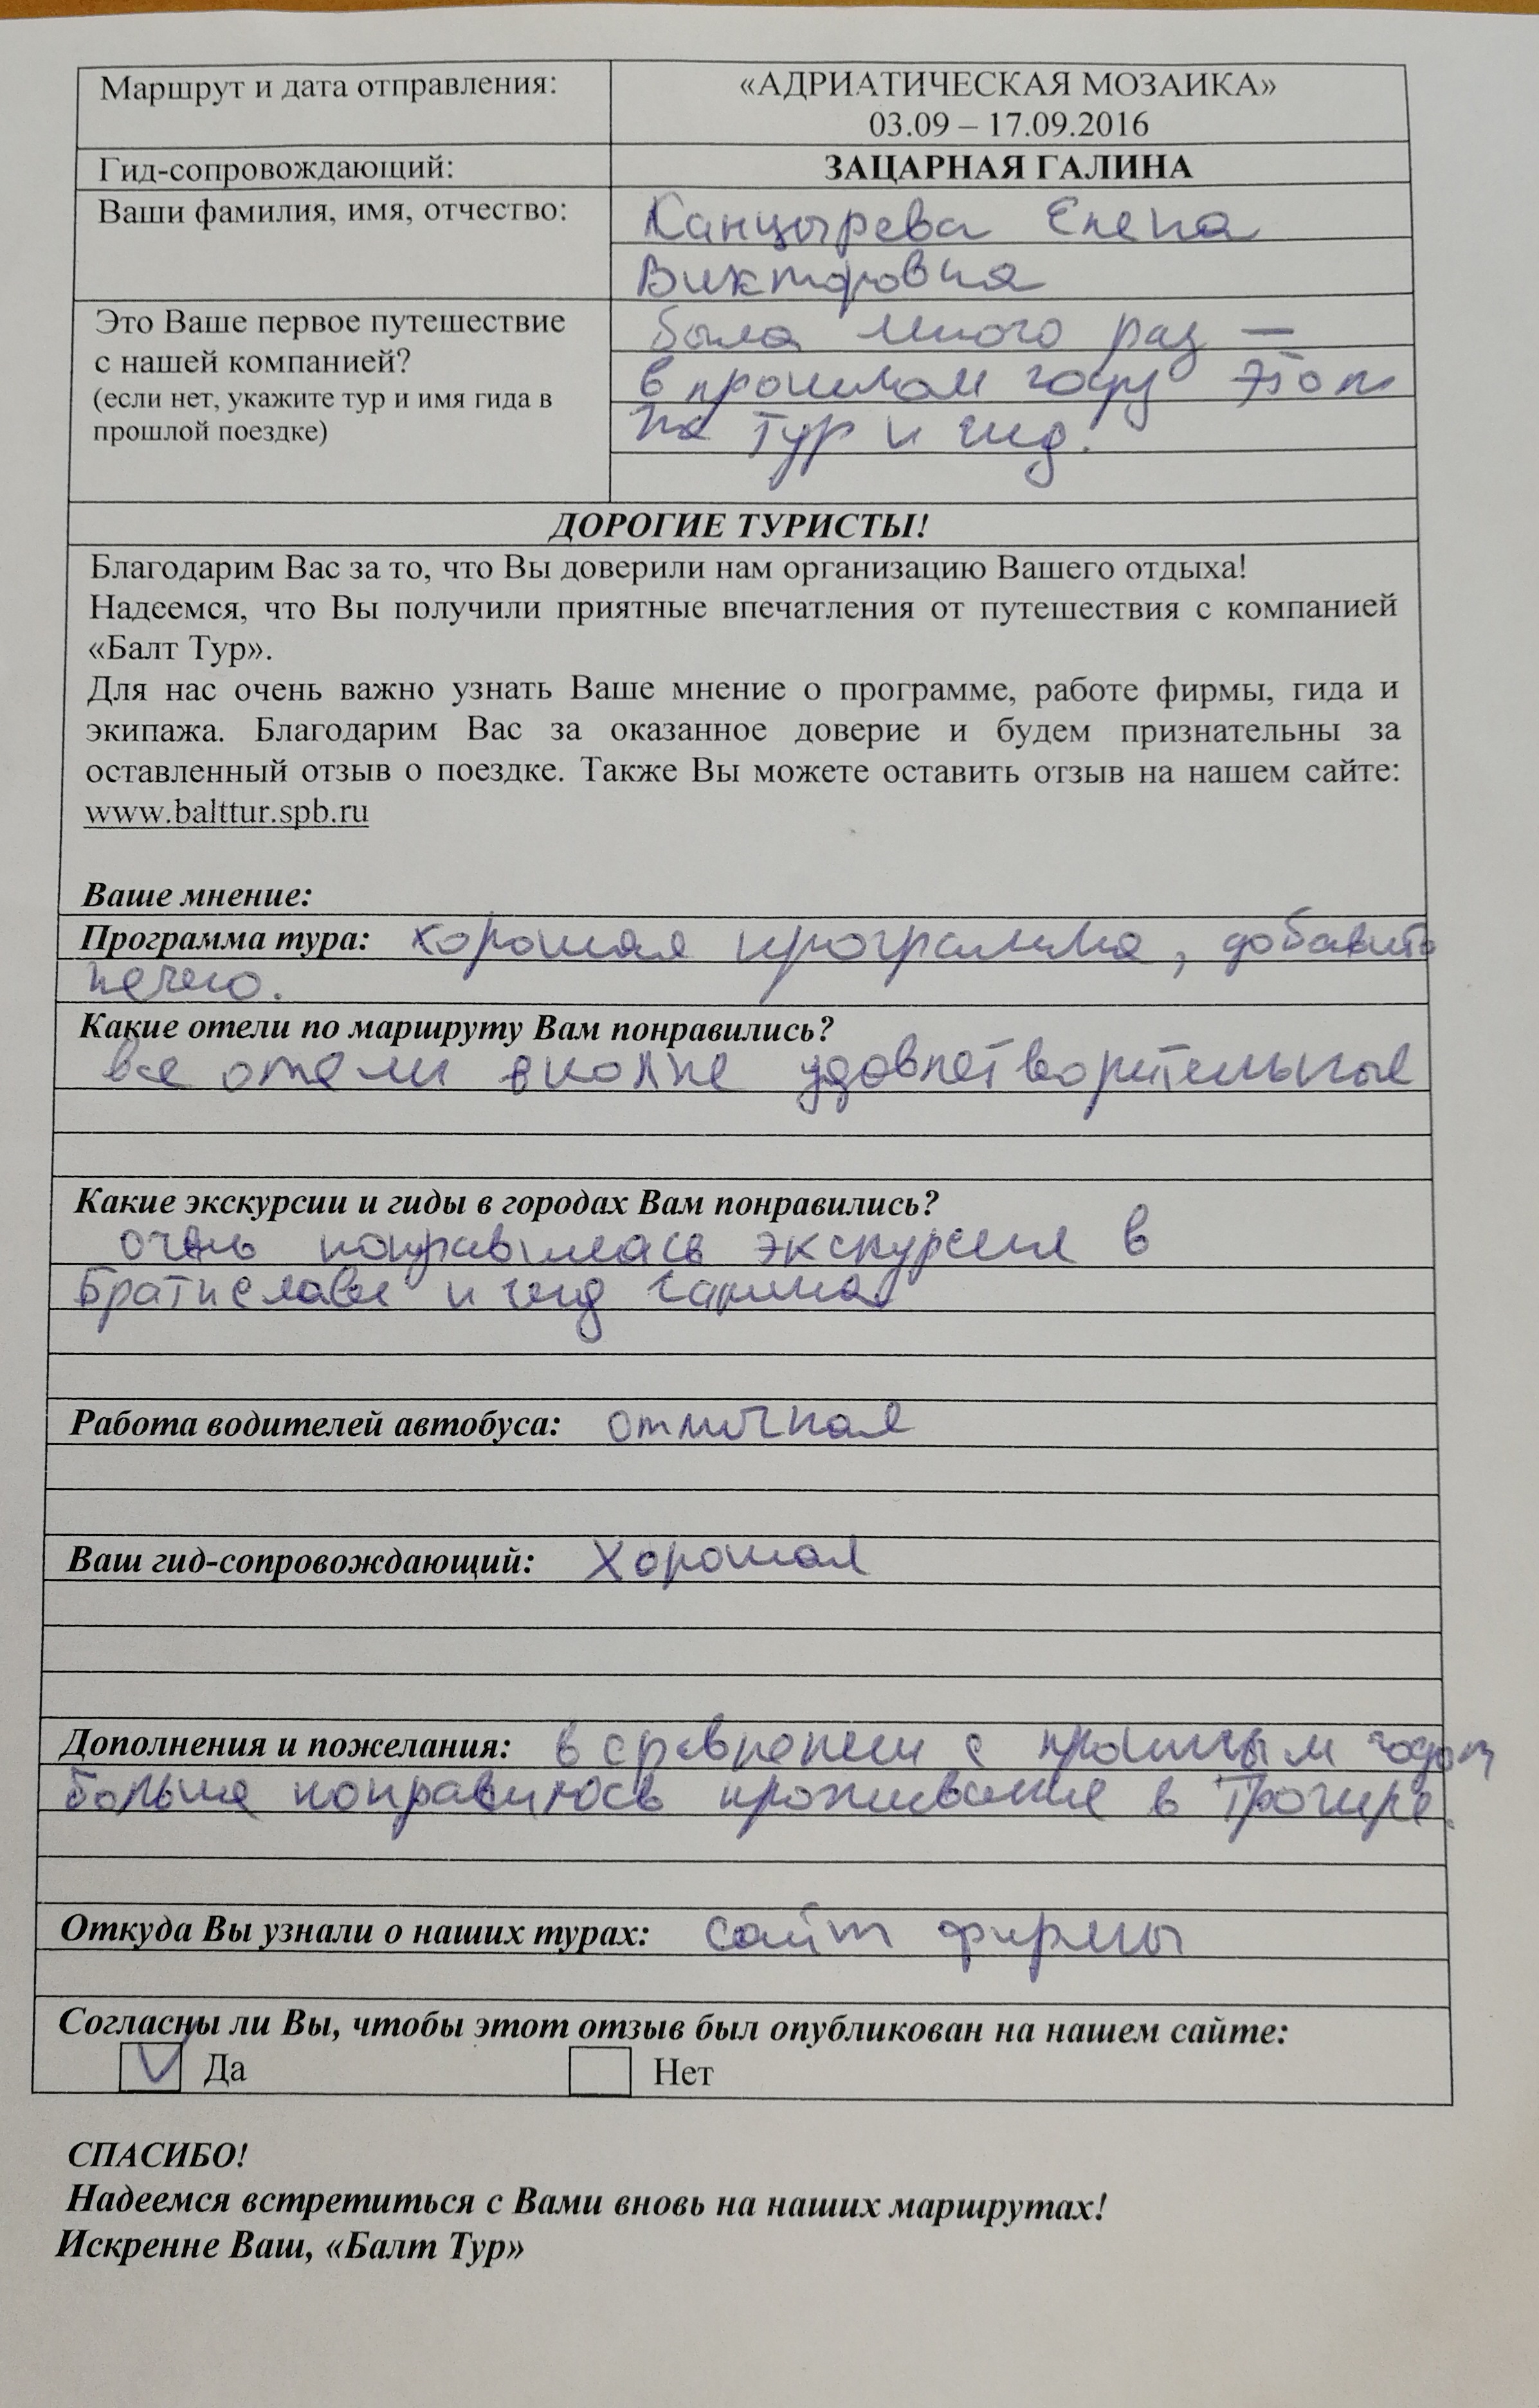 Маршрут и дата отправления:
«АДРИАТИЧЕСКАЯ МОЗАИКА»
03.09 – 17.09.2016
Гид-сопровождающий:
ЗАЦАРНАЯ ГАЛИНА
Ваши фамилия, имя, отчество:
Канцырева Елена
Викторовна
Это Ваше первое путешествие
с нашей компанией?
(если нет, укажите тур и имя гида в
прошлой поездке)
была много раз –
в прошлом году этот
же тур и гид.
ДОРОГИЕ ТУРИСТЫ!
Благодарим Вас за то, что Вы доверили нам организацию Вашего отдыха!
Надеемся, что Вы получили приятные впечатления от путешествия с компанией
«Балт Тур».
Для нас очень важно узнать Ваше мнение о программе, работе фирмы, гида и
экипажа. Благодарим Вас за оказанное доверие и будем признательны за
оставленный отзыв о поездке. Также Вы можете оставить отзыв на нашем сайте:
www.balttur.spb.ru
Ваше мнение:
Программа тура: хорошая программа, добавить
нечего.
Какие отели по маршруту Вам понравились?
все отели вполне удовлетворительные
Какие экскурсии и гиды в городах Вам понравились?
очень понравилась экскурсия в
Братиславе и гид Галина
Работа водителей автобуса: отличная
Ваш гид-сопровождающий: хорошая
Дополнения и пожелания: в сравнении с прошлым годом
больше понравилось проживание в Трогире.
Откуда Вы узнали о наших турах: сайт фирмы
Согласны ли Вы, чтобы этот отзыв был опубликован на нашем сайте:
V Да Нет
СПАСИБО!
Надеемся встретиться с Вами вновь на наших маршрутах!
Искренне Ваш, «Балт Тур»